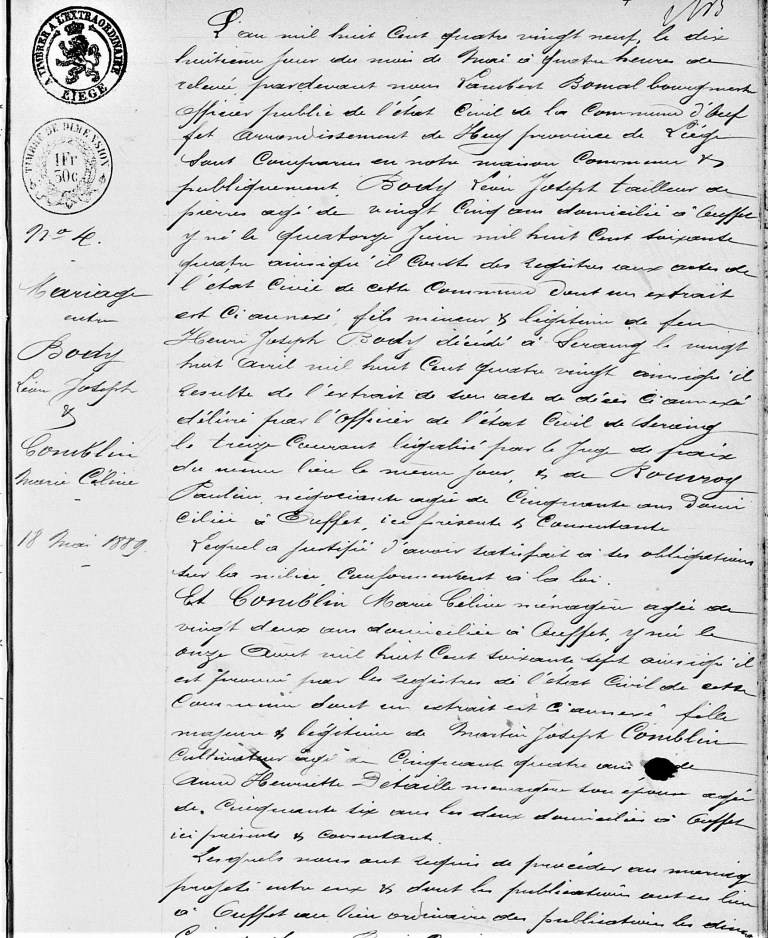 A TIMBRER A L'EXTRAORDINAIRE
LIEGE
TIMBRE DE DIMENSION
1Fr
30c
No 4.
Mariage
entre
Body
Léon Joseph
&
Comblin
Marie Céline
18 Mai 1889.
L'an mil huit Cent quatre vingt neuf, le dix
huitième jour du mois de Mai à quatre heures de
relevée, pardevant nous Lambert Bomal bourgmestre
officier public de l'état Civil de la Commune d'Ouf
fet Arrondissement de Huy province de Liége
Sont Comparus en notre maison Commune &
publiquement, Body Léon Joseph tailleur de
pierres agé de vingt Cinq ans domicilié à Ouffet
y né le quatorze Juin mil huit Cent soixante
quatre ainsiqu'il Conste des registres aux actes de
l'état Civil de cette Commune dont un extrait
est Ci annexé, fils mineur & légitime de feu
Henri Joseph Body décédé à Seraing le vingt
huit Avril mil huit Cent quatre vingt ainsiqu'il
résulte de l'extrait de son acte de décès Ci annexé
délivré par l'Officier de l'état Civil de Seraing
le treize Courant légalisé par le Juge de paix
du même lieu le même jour, & de Rouvroy
Pauline, négociante agée de Cinquante ans domi
ciliée à Ouffet, ici présente & Consentante
Lequel a justifié d'avoir satisfait à ses obligations
sur la milice, conformément à la loi.
Et Comblin Marie Céline ménagère agée de
vingt deux ans domiciliée à Ouffet, y née le
onze Avril mil huit Cent soixante sept ainsiqu'il
est prouvé par les registres de l'état Civil de cette
Commune dont un extrait est Ci annexé fille
majeure & légitime de Martin Joseph Comblin
Cultivateur agé de Cinquante quatre ans de
Anne Henriette Detaille ménagère son épouse agée
de Cinquante six ans les deux domiciliés à Ouffet
ici présents & consentant.
Lesquels nous ont requis de procéder au mariage
projeté entre eux & dont les publications ont eu lieu
à Ouffet au lieu ordinaire des publications les